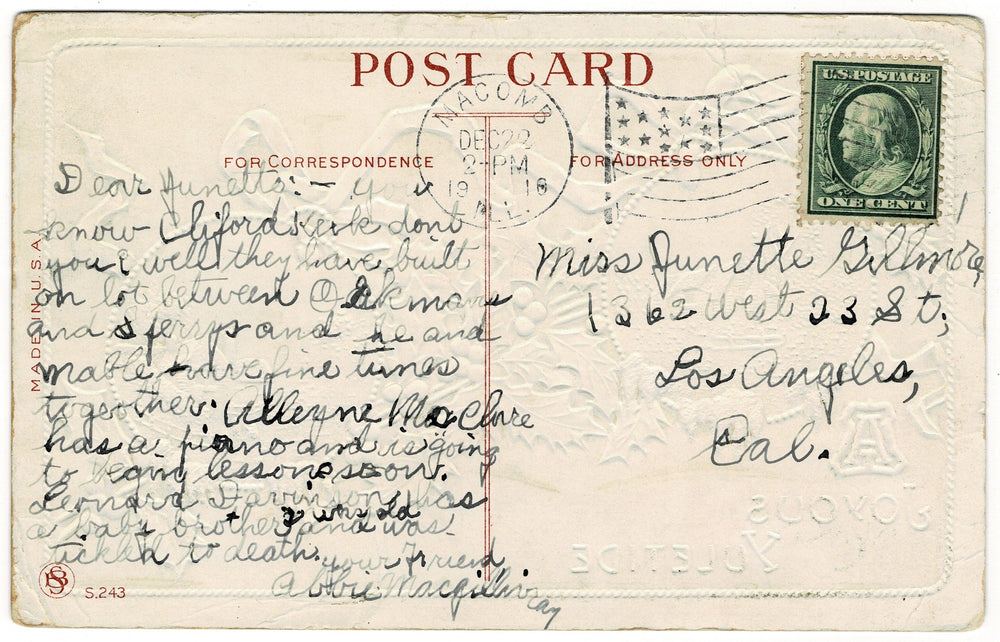 POST CARD
MACOMB
DEC 22
2-PM
19 16
ILL.
U.S. POSTAGE
ONE CENT
FOR CORRESPONDENCE
FOR ADDRESS ONLY
Dear Junetta:- you
know Cliford Kirk dont
you & well they have built
on lot between Oakmans
and Sperrys and he and
mable have fine times
together. Alleyne McClure
has a piano and is going
to begin lessons soon.
Leonard has
a baby brother 3 wks old and was
tickled to death.
your friend
Abbie Macgillivray
Miss Junette Gillmore,
1362 West 23 St,
Los Angeles,
Cal.
A
JOYOUS
YULETIDE
MADE IN U.S.A.
S.243